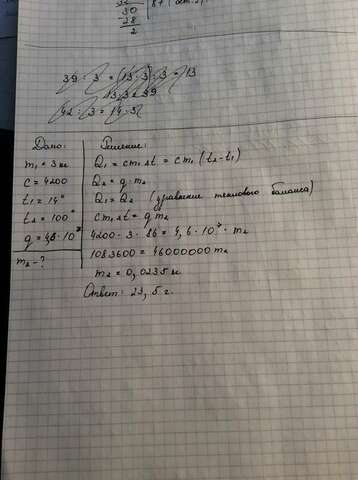 30
28
2
87 (ост.2)
39 : 3 = (13 · 3) : 3 = 13
13 · 3 = 39
42 : 3 = 14 · 3
Дано:
m₁ = 3 кг
c = 4200
t₁ = 14°
t₂ = 100°
q = 4,6 · 10⁷
m₂ - ?
Решение:
Q₁ = cm₁ Δt = cm₁ (t₂ - t₁)
Q₂ = q · m₂
Q₁ = Q₂ (уравнение теплового баланса)
cm₁ Δt = q m₂
4200 · 3 · 86 = 4,6 · 10⁷ · m₂
1083600 = 46000000 m₂
m₂ = 0,0235 кг
Ответ: 23,5 г.